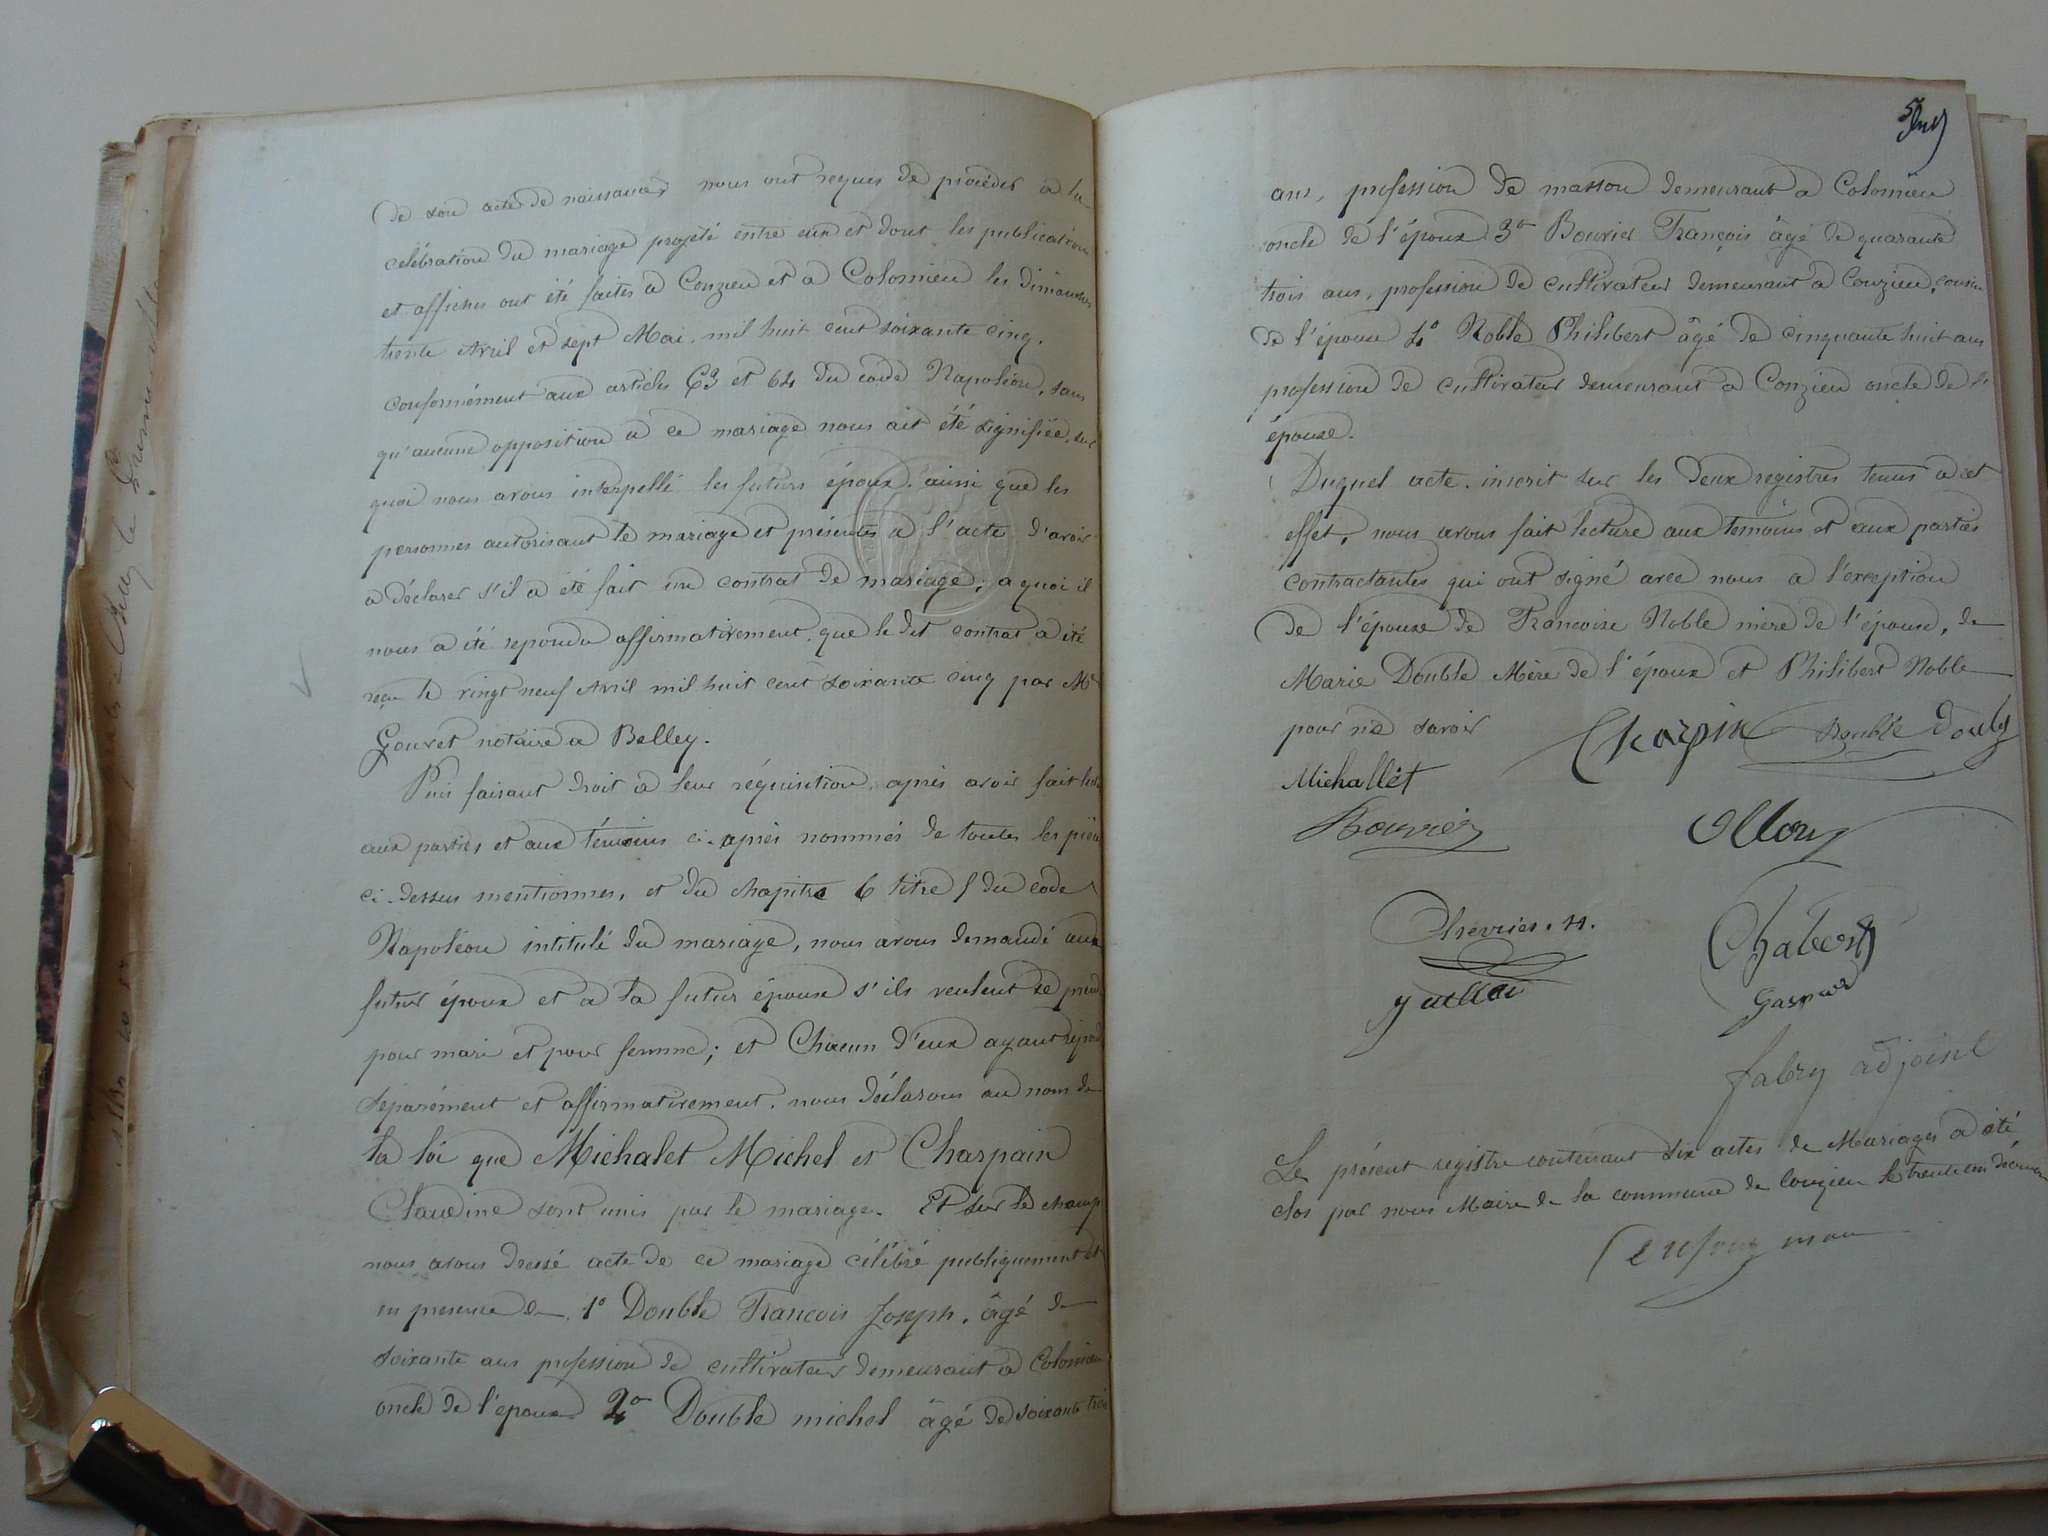 de son acte de naissance nous ont requis de procéder à la
célébration du mariage projeté entre eux et dont les publications
et affiches ont été faites à Conzieu et à Colomieu les dimanches
trente Avril et sept Mai, mil huit cent soixante cinq,
conformément aux articles 63 et 64 du code Napoléon, sans
qu'aucune opposition à ce mariage nous ait été signifiée, sur
quoi nous avons interpellé les futurs époux, ainsi que les
personnes autorisant le mariage et présentes à l'acte d'avoir
à déclarer s'il a été fait un contrat de mariage; a quoi il
nous a été repondu affirmativement, que le dit contrat a été
reçu le vingt neuf Avril mil huit cent soixante cinq par Me
Gouvet notaire à Belley.
Puis faisant droit à leur réquisition, après avoir fait
aux parties et aux témoins ci-après nommés de toutes les
ci-dessus mentionnes, et du chapitre 6 titre 5 du code
Napoléon intitulé du mariage, nous avons demandé aux
futur époux et à la futur épouse s'ils veulent se
pour mari et pour femme; et Chacun d'eux ayant
séparément et affirmativement, nous déclarons au nom de
la loi que Michalet Michel et Charpain
Claudine sont unis par le mariage. Et sur le champ
nous avons dressé acte de ce mariage célébré publiquement et
en presence de 1° Double Francois Joseph, âgé de
soixante ans profession de cultivateur demeurant à Colomieu
oncle de l'epoux 2° Double michel âgé de soixante trois
ans, profession de masson demeurant à Colomieu
oncle de l'époux 3° Bouvier François âgé de quarante
trois ans, profession de cultivateur demeurant à Conzieu, cousin
de l'épouse 4° Noble Philibert âgé de cinquante huit ans
profession de cultivateur demeurant à Conzieu oncle de l'
épouse.
Duquel acte, inscrit sur les deux registres tenus à cet
effet, nous avons fait lecture aux temoins et aux parties
contractantes qui ont signé avec nous à l'exception
de l'épouse de Francoise Noble mère de l'épouse, de
Marie Double Mère de l'époux et Philibert Noble
pour ne savoir Charpin Double Double
Michallet
Bouvier
Chevrier
Chabert
Gaspard
fabry adjoint
Le présent registre contenant six actes de Mariages a été
clos par nous Maire de la commune de Conzieu le trente un décembre